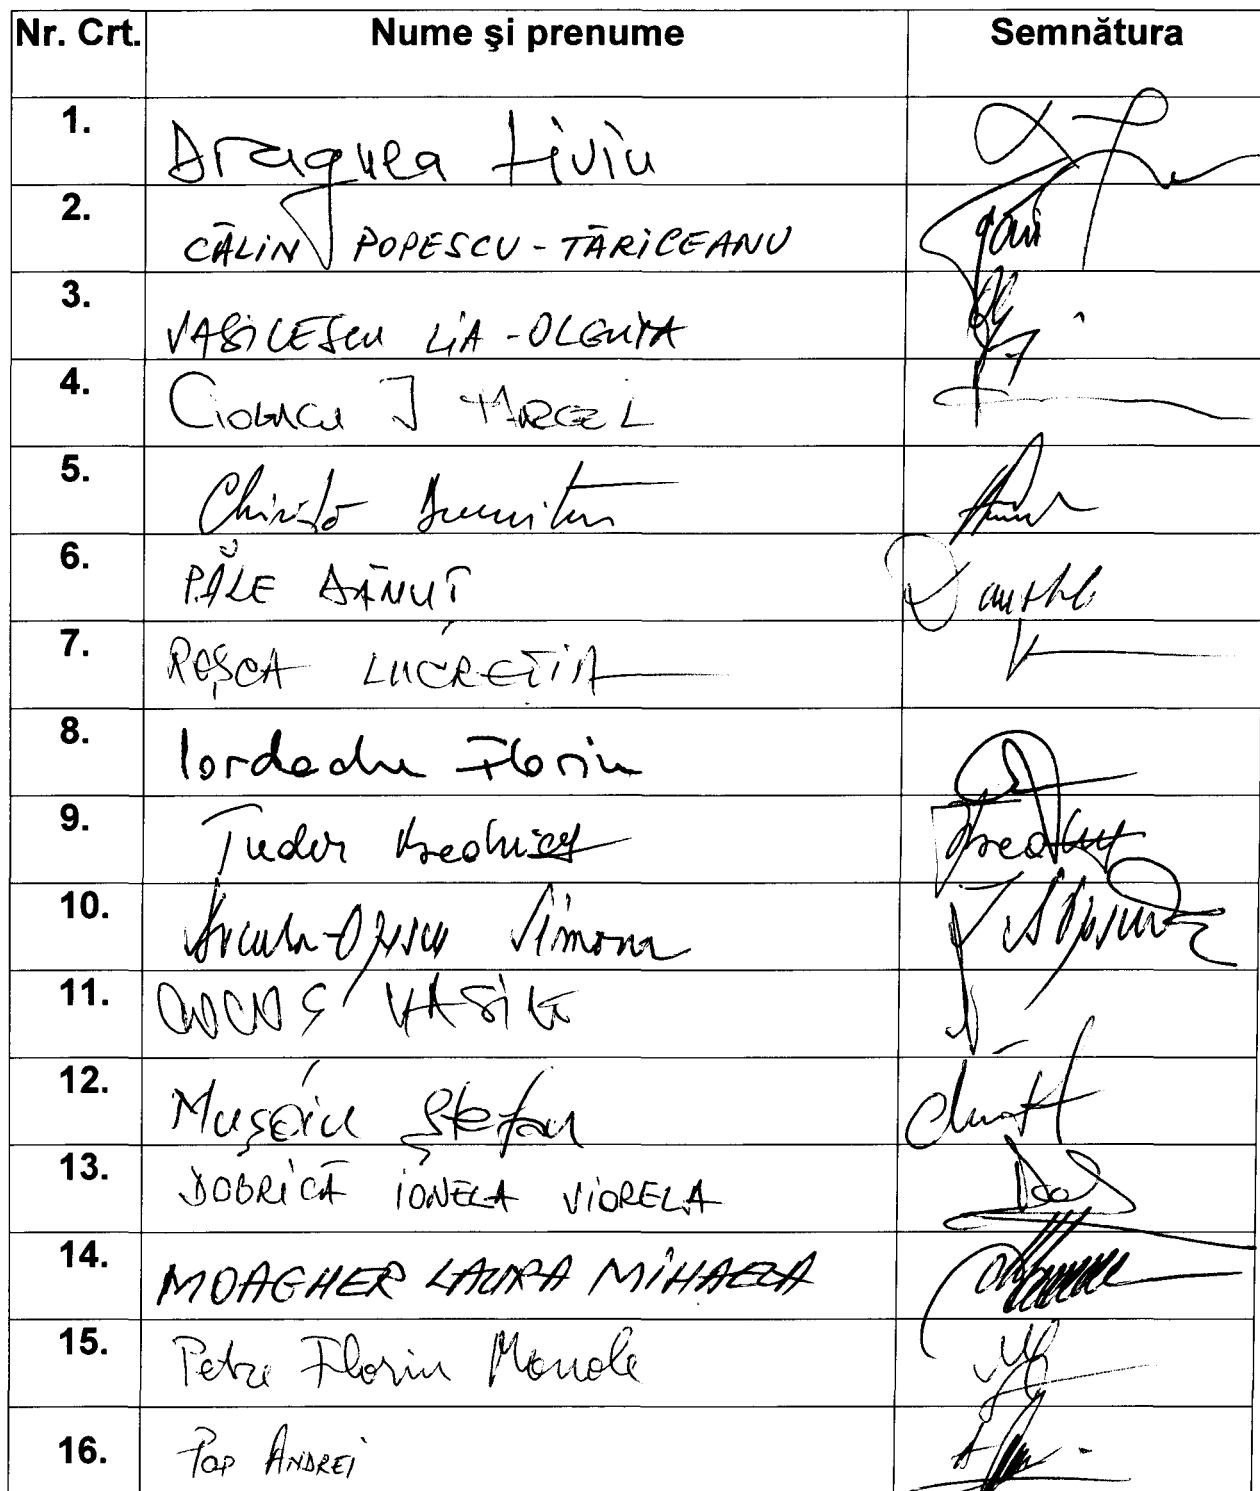 Nr. Crt. Nume şi prenume Semnătura
1. Dragnea Liviu
2. CĂLIN POPESCU-TĂRICEANU
3. VASILESCU LIA-OLGUȚA
4. Ciobucu I MARCEL
5. Chiriță Dumitru
6. PĂLE DĂNUȚ
7. ROȘCA LUCREȚIA
8. Iordache Florin
9. Tudor
10. Bucura-Oprescu Simona
11. COCOȘ VASILE
12. Mușoiu Ștefan
13. DOBRICĂ IONELA VIORELA
14. MOAGHER LAURA MIHAELA
15. Petre Florin Manole
16. Pop ANDREI